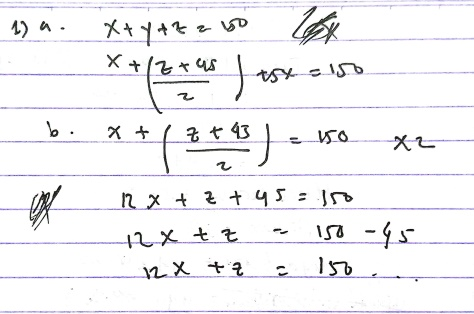 1) a. x + y + z = 150
x + (z + 45 / 2) + 5x = 150
b. x + (z + 45 / 2) = 150 x 2
12x + z + 45 = 150
12x + z = 150 - 45
12x + z = 150 . . .